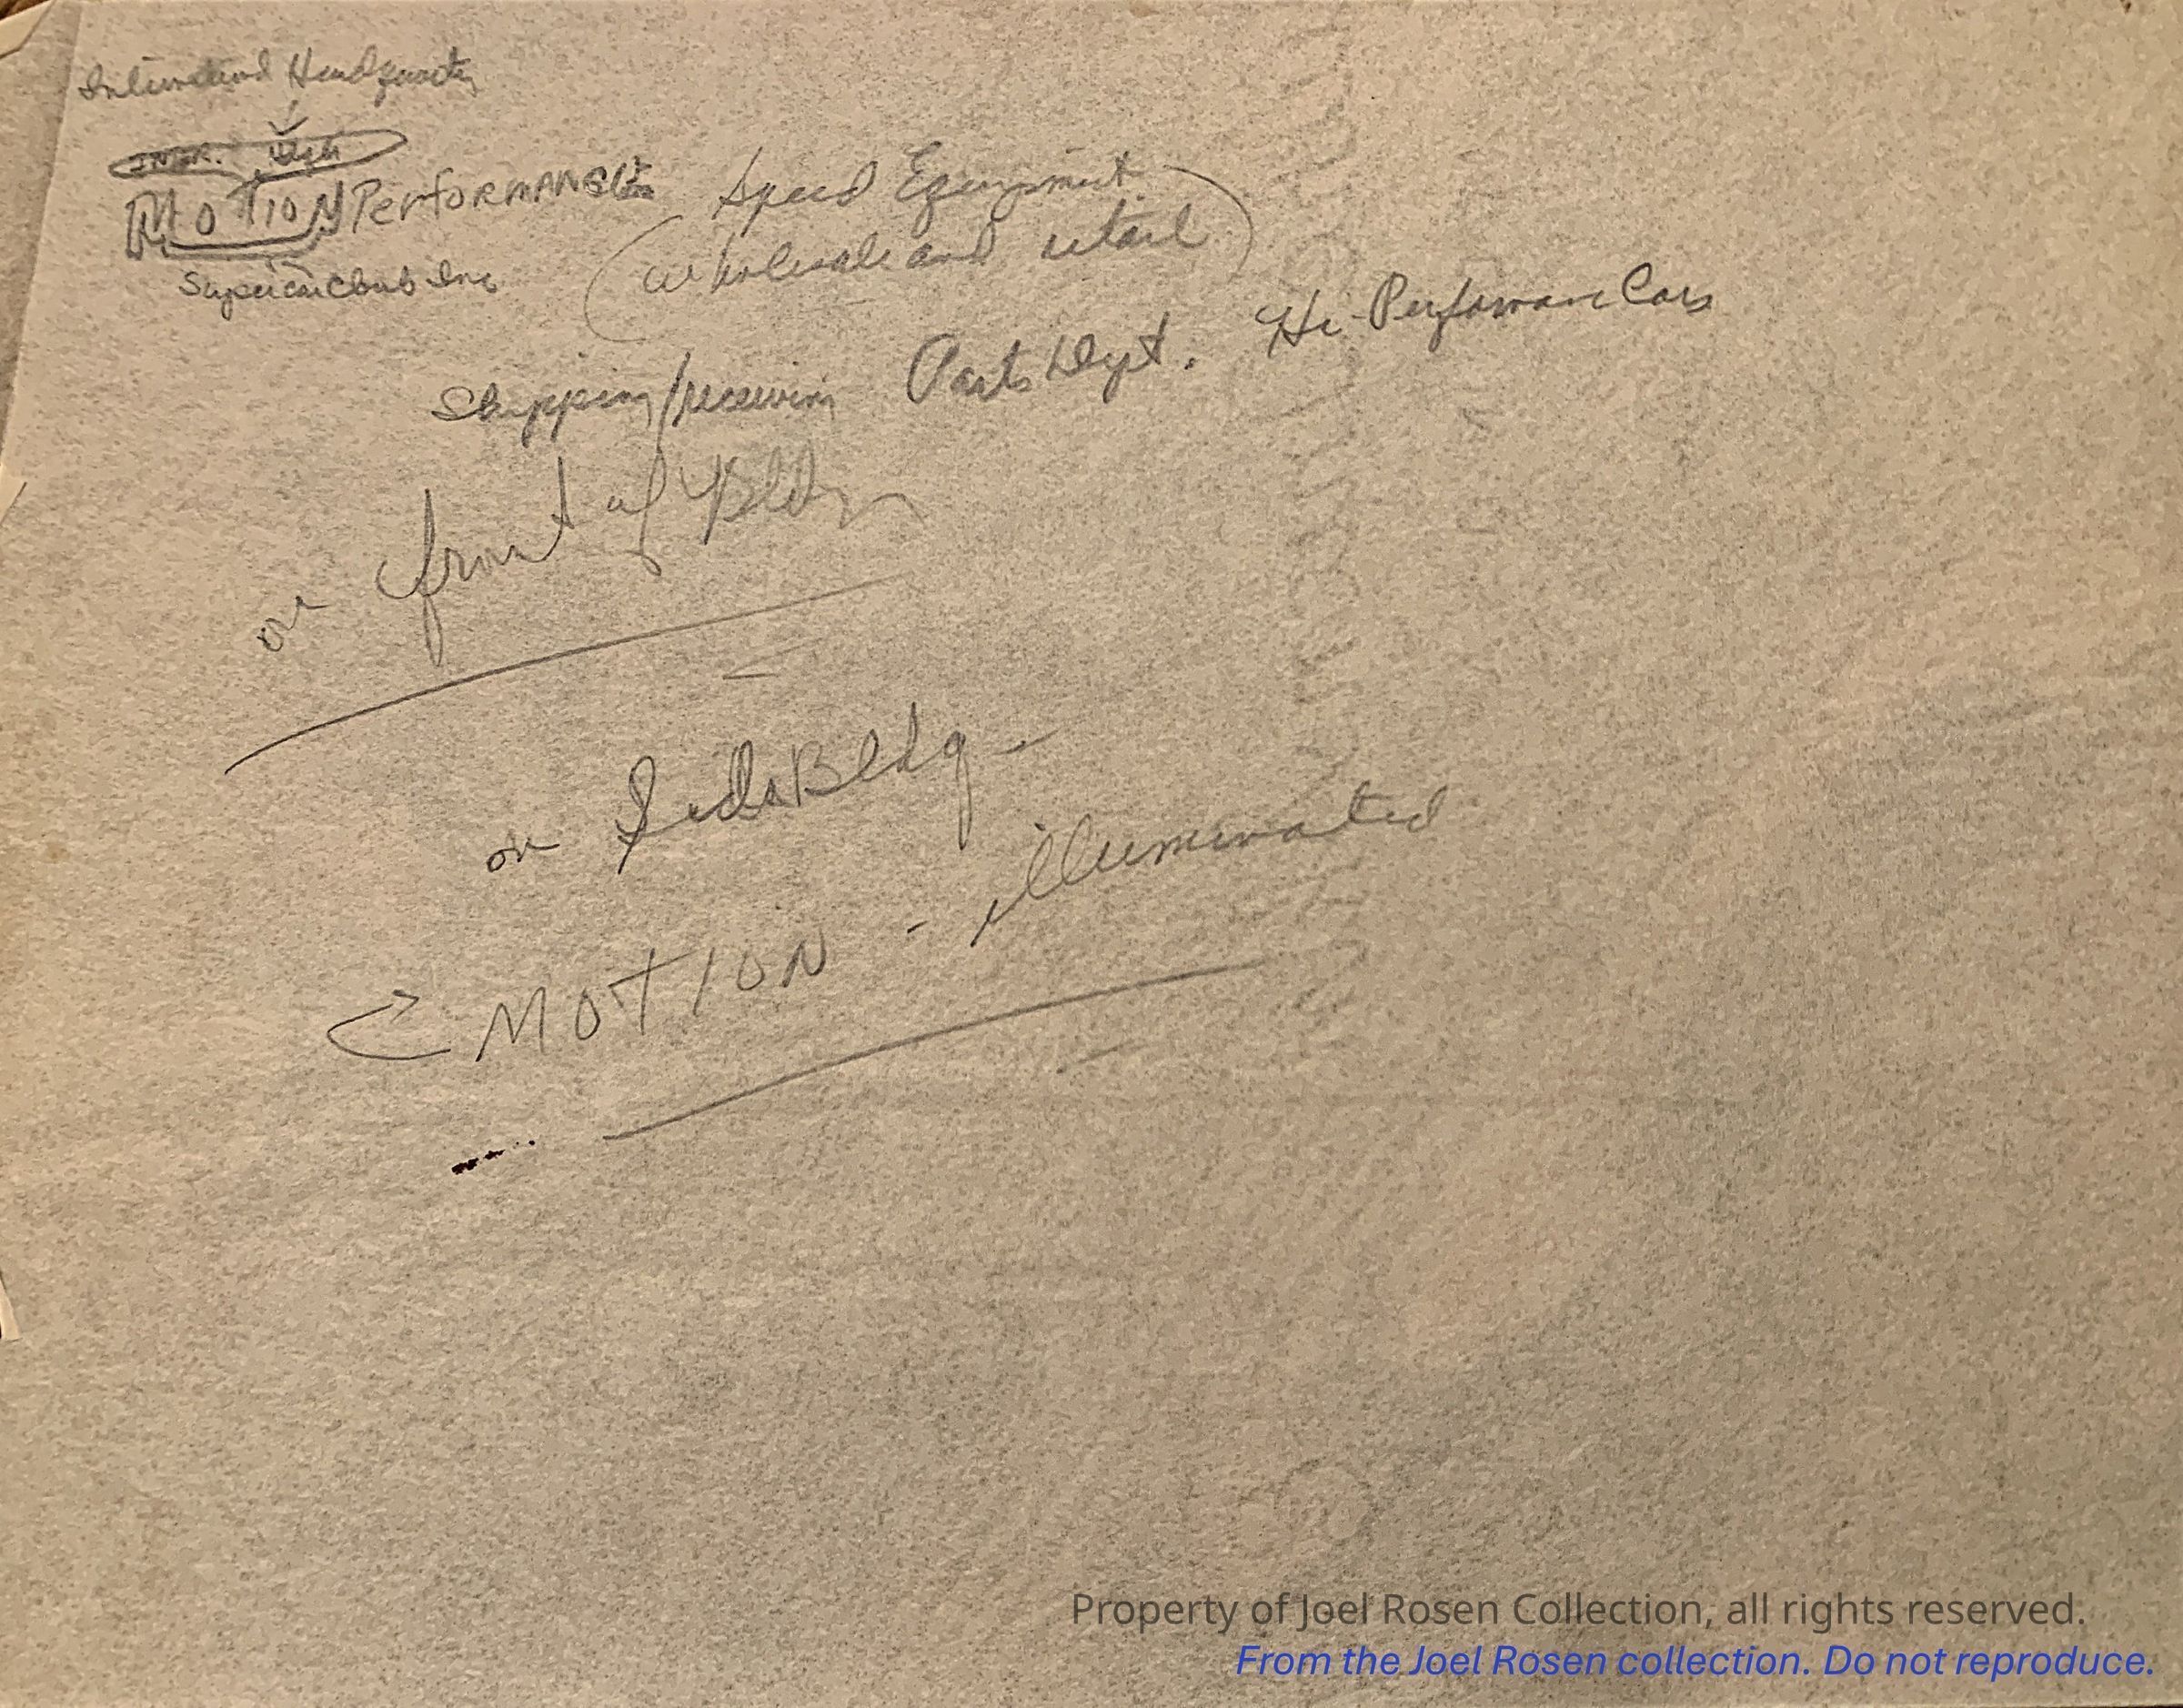 International Headquarters
INTER.
MOTION Performance
Supercar Club Inc
Speed Equipment
(wholesale and retail)
Shipping/receiving Parts Dept. Hi-Performance Cars
on front of Bldg
on Side Bldg -
MOTION - illuminated
Property of Joel Rosen Collection, all rights reserved.
From the Joel Rosen collection. Do not reproduce.